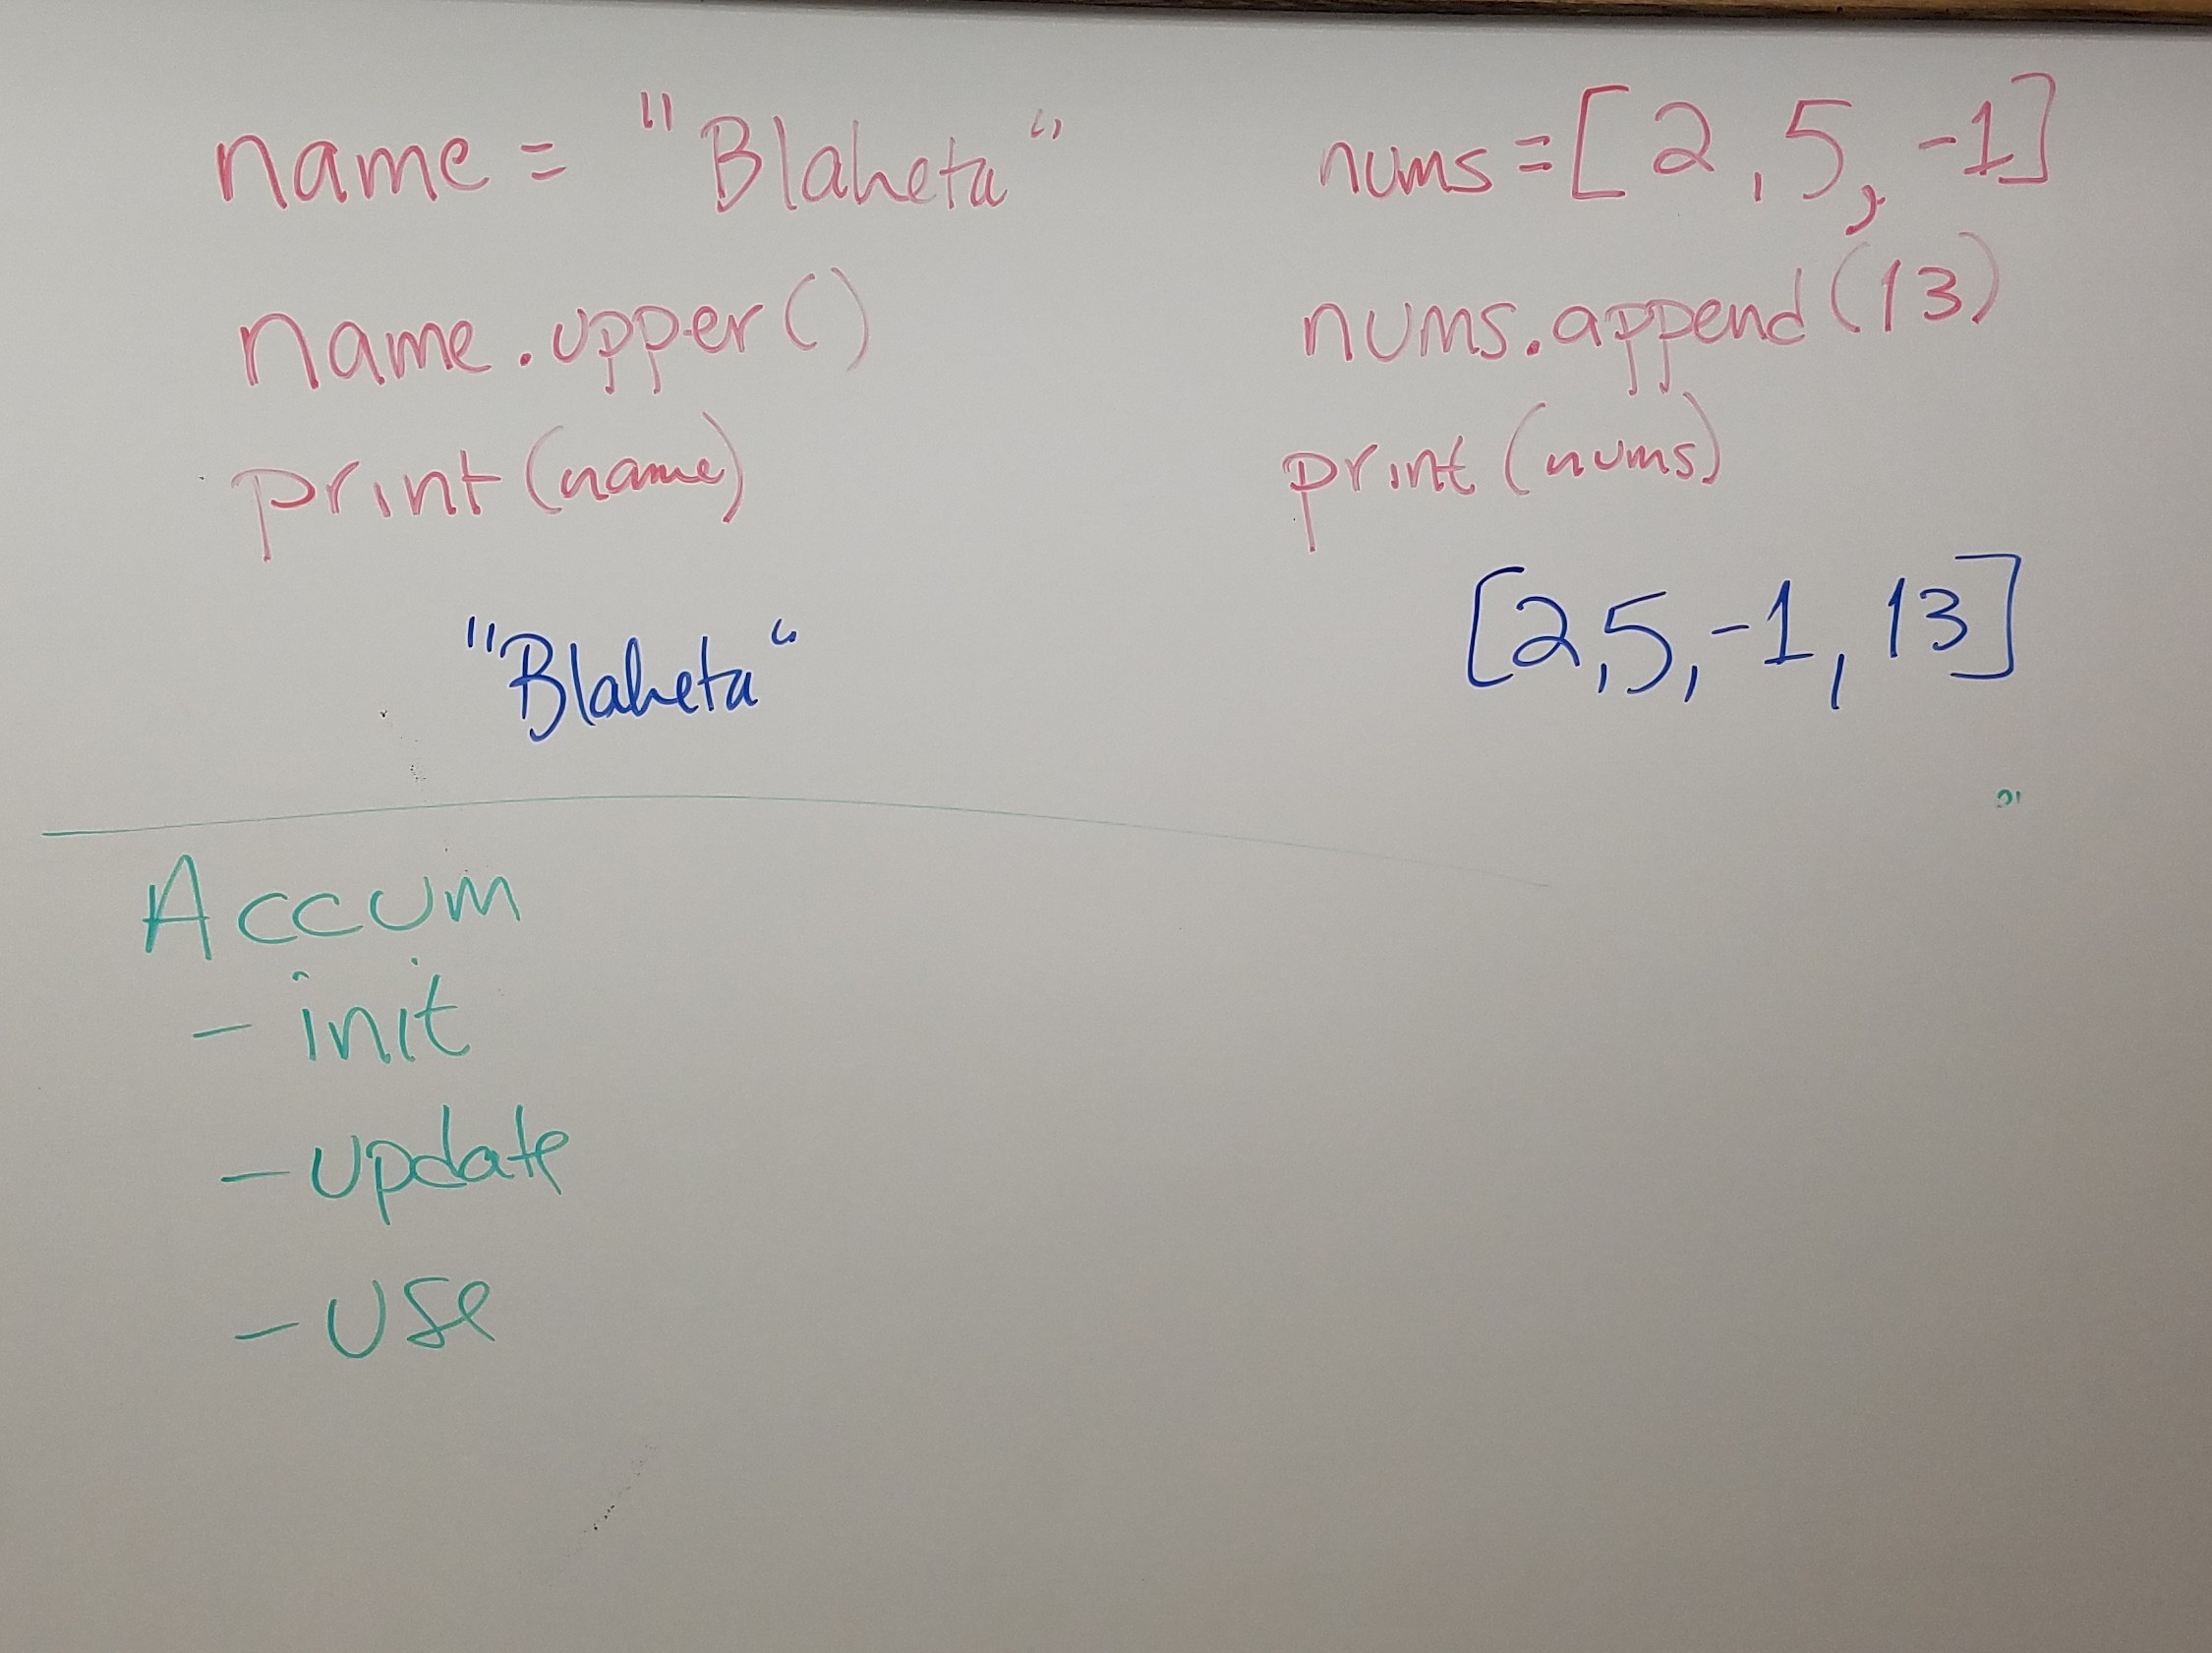 name = "Blaheta"
name.upper()
print(name)
"Blaheta"
nums = [2, 5, -1]
nums.append(13)
print(nums)
[2, 5, -1, 13]
Accum
- init
- update
- use